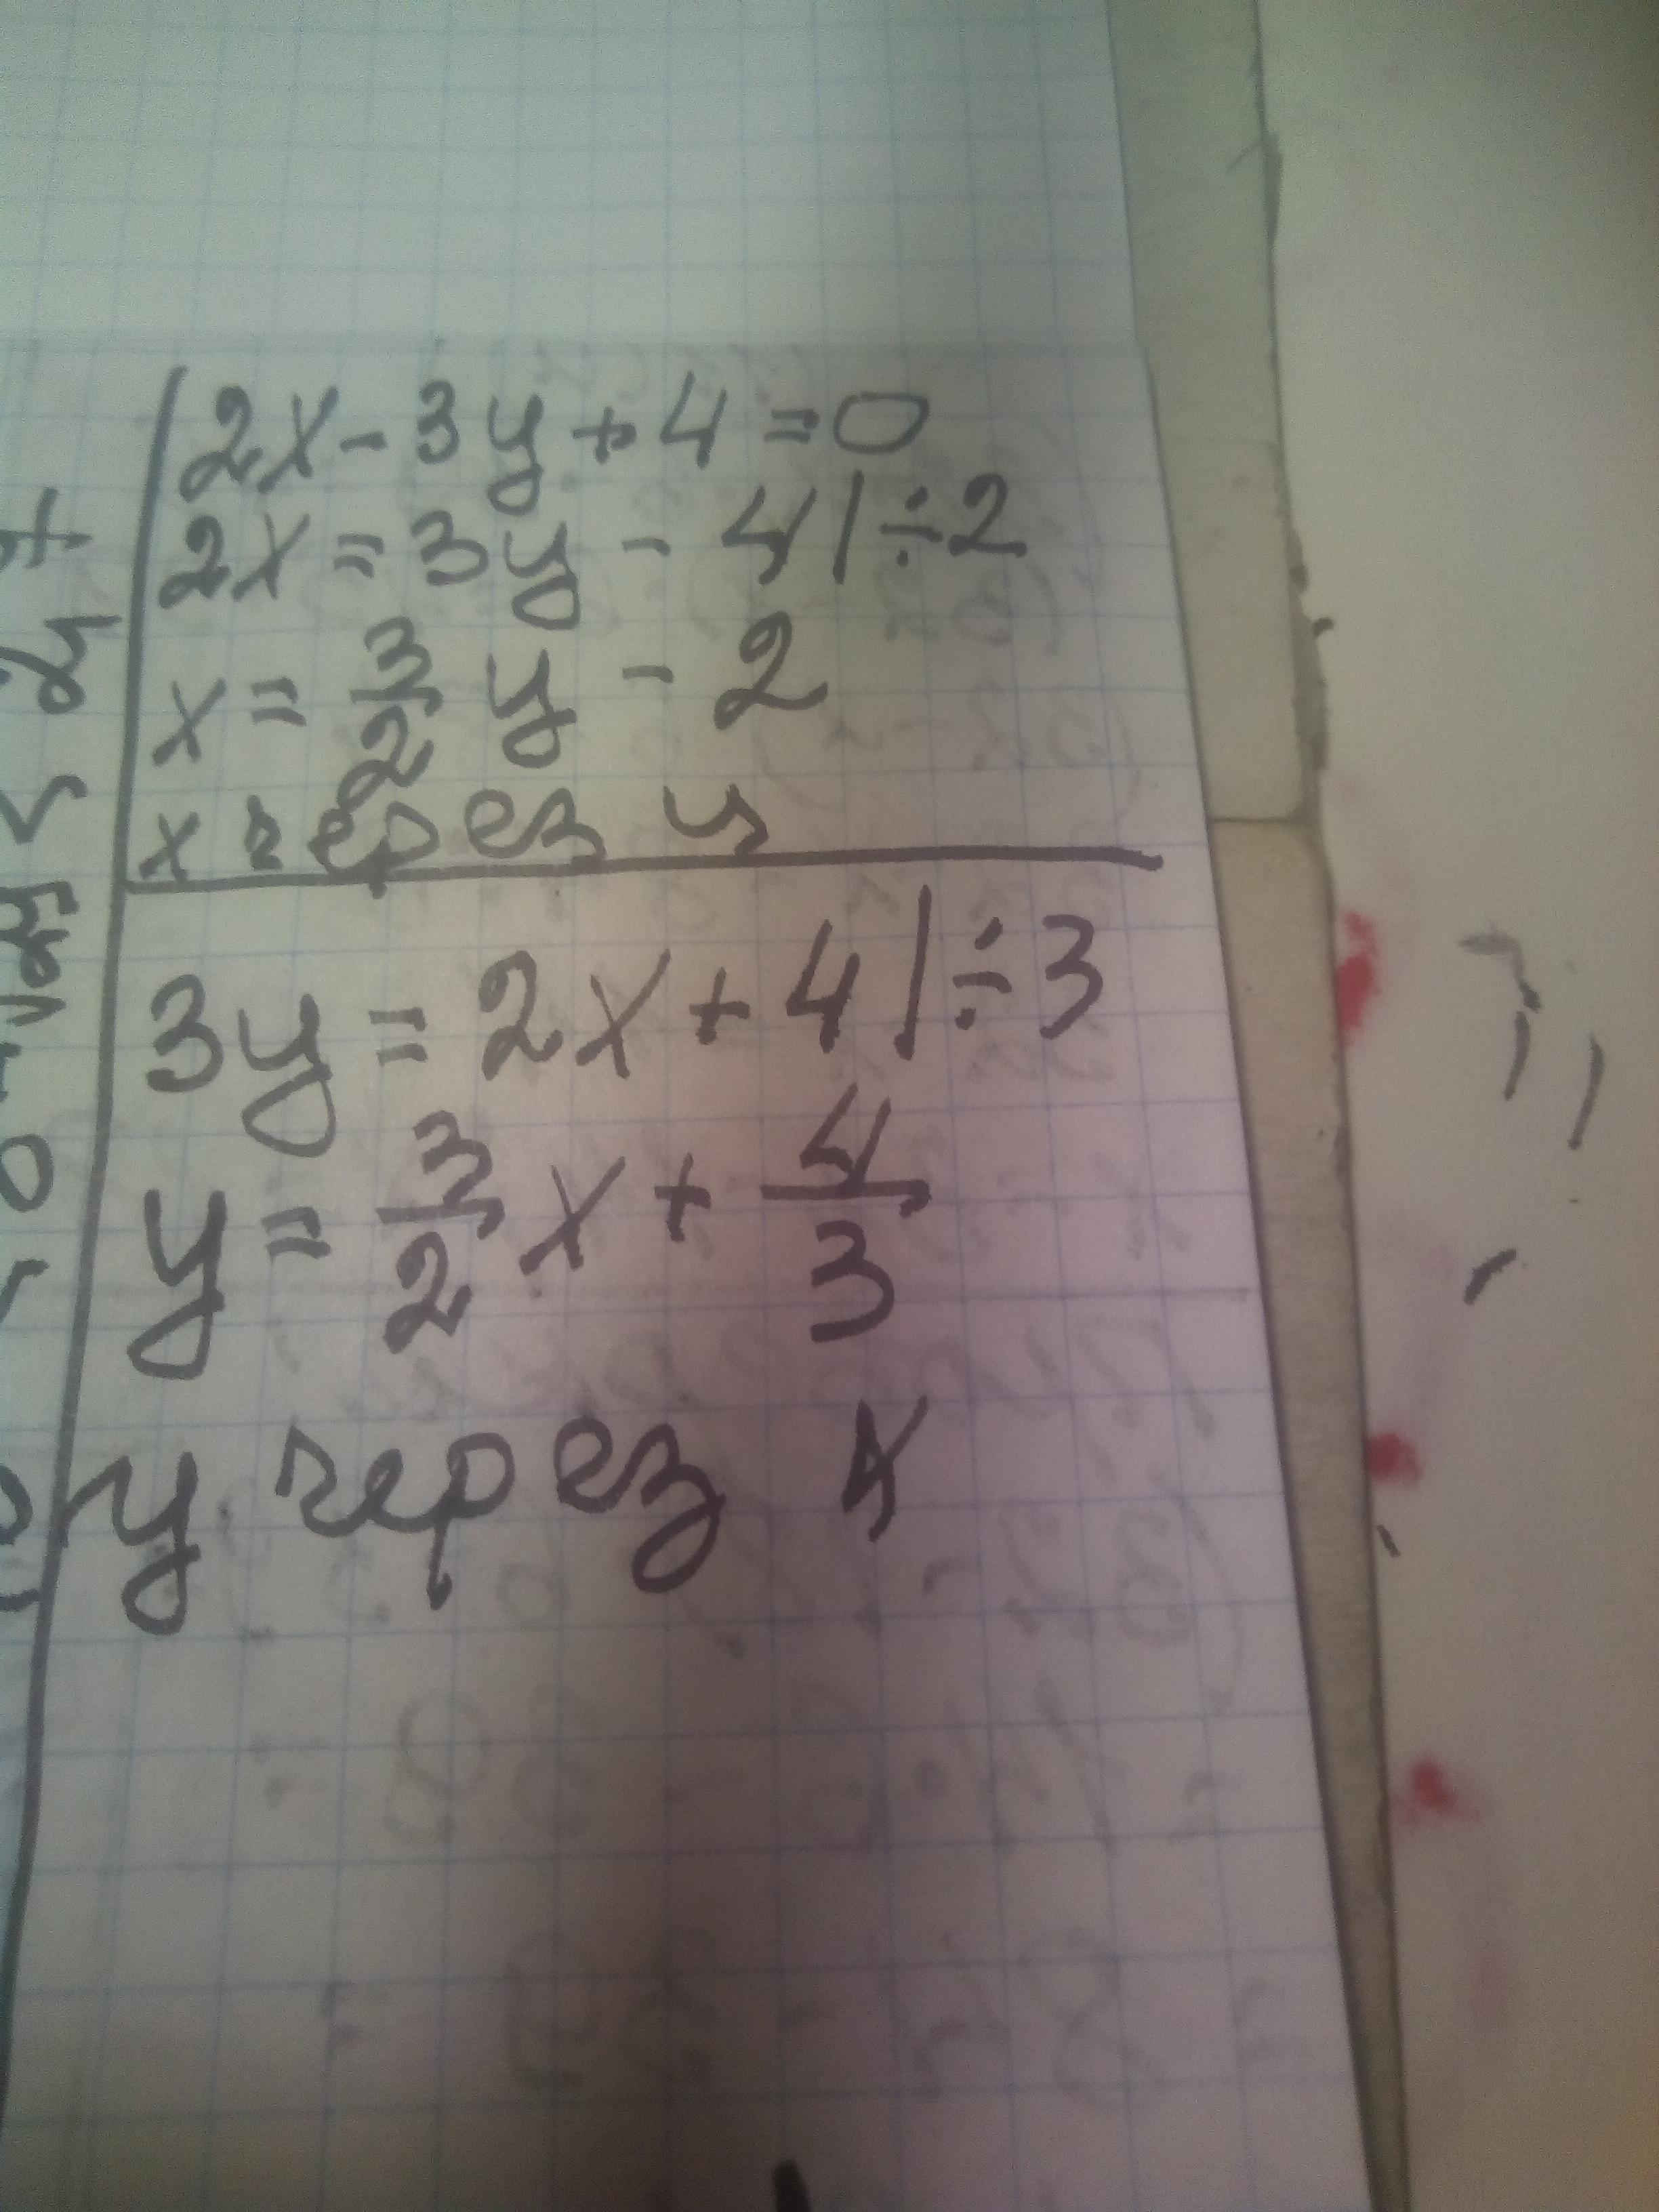 2x - 3y + 4 = 0
2x = 3y - 4 | ÷ 2
x = 3/2 y - 2
x через y
3y = 2x + 4 | ÷ 3
y = 3/2 x + 4/3
y через x